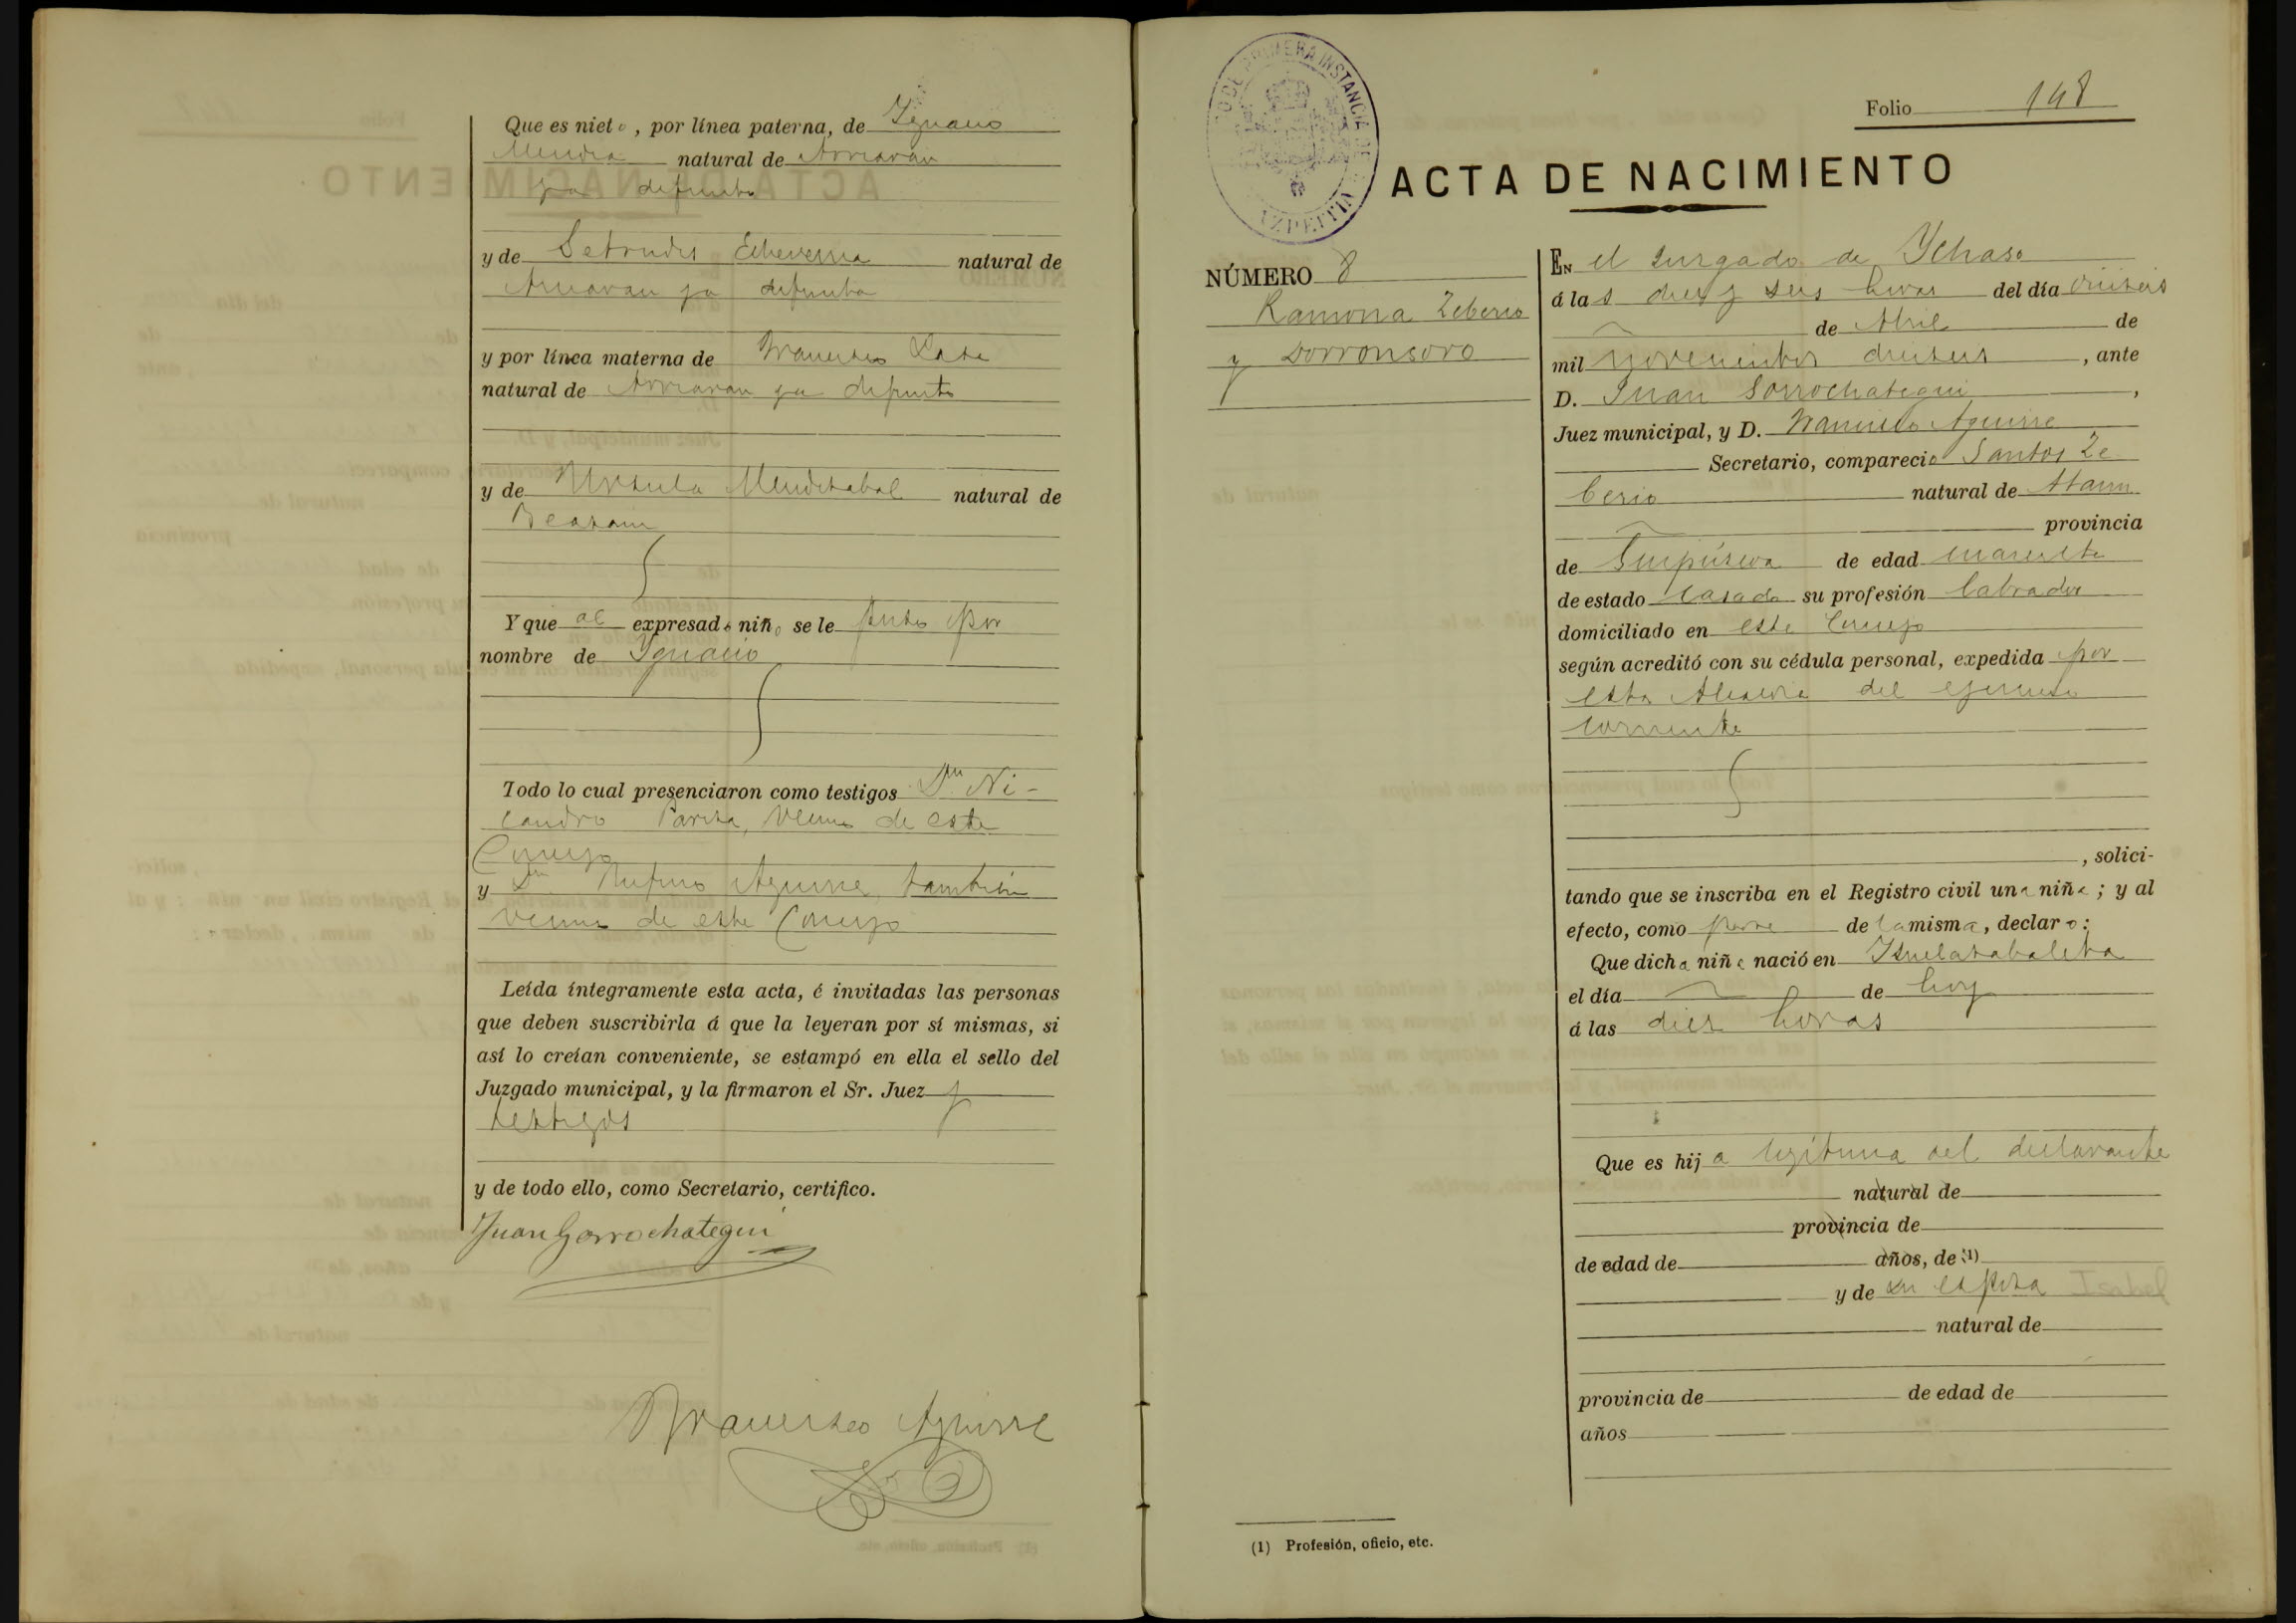 Que es nieto, por línea paterna, de Ygnacio
Mendia natural de Arriaran
ya difunto
y de Getrudis Echeverria natural de
Arriaran ya difunta
y por línea materna de Francisco
natural de Arriaran ya difunto
y de Ursula Mendizabal natural de
Beasain
Y que al expresado niño se le puso por
nombre de Ygnacio
Todo lo cual presenciaron como testigos Dn Ni-
candro Pariza, vecino de este
Concejo
y Dn Rufino Aguirre, también
vecino de este Concejo
Leída íntegramente esta acta, é invitadas las personas
que deben suscribirla á que la leyeran por sí mismas, si
así lo creían conveniente, se estampó en ella el sello del
Juzgado municipal, y la firmaron el Sr. Juez y
testigos
y de todo ello, como Secretario, certifico.
Juan Gorrochategui
Francisco Aguirre
Folio 148
ACTA DE NACIMIENTO
NÚMERO 8
Ramona Zeberio
y Dorronsoro
EN el Juzgado de Ychaso
á las diez y seis horas del día diiseis
de Abril de
mil novecientos dieciseis, ante
D. Juan Gorrochategui,
Juez municipal, y D. Francisco Aguirre
Secretario, compareció Santos Ze
berio natural de Ataun
provincia
de Guipúzcoa de edad cuarenta
de estado casado su profesión labrador
domiciliado en este Concejo
según acreditó con su cédula personal, expedida por
esta Alcaldia del ejercicio
corriente
, solici-
tando que se inscriba en el Registro civil una niña; y al
efecto, como padre de la misma, declaro:
Que dicha niña nació en
el día de hoy
á las diez horas
Que es hija legitima del declarante
natural de
provincia de
de edad de años, de (1)
y de su esposa Isabel
natural de
provincia de de edad de
años
(1) Profesión, oficio, etc.